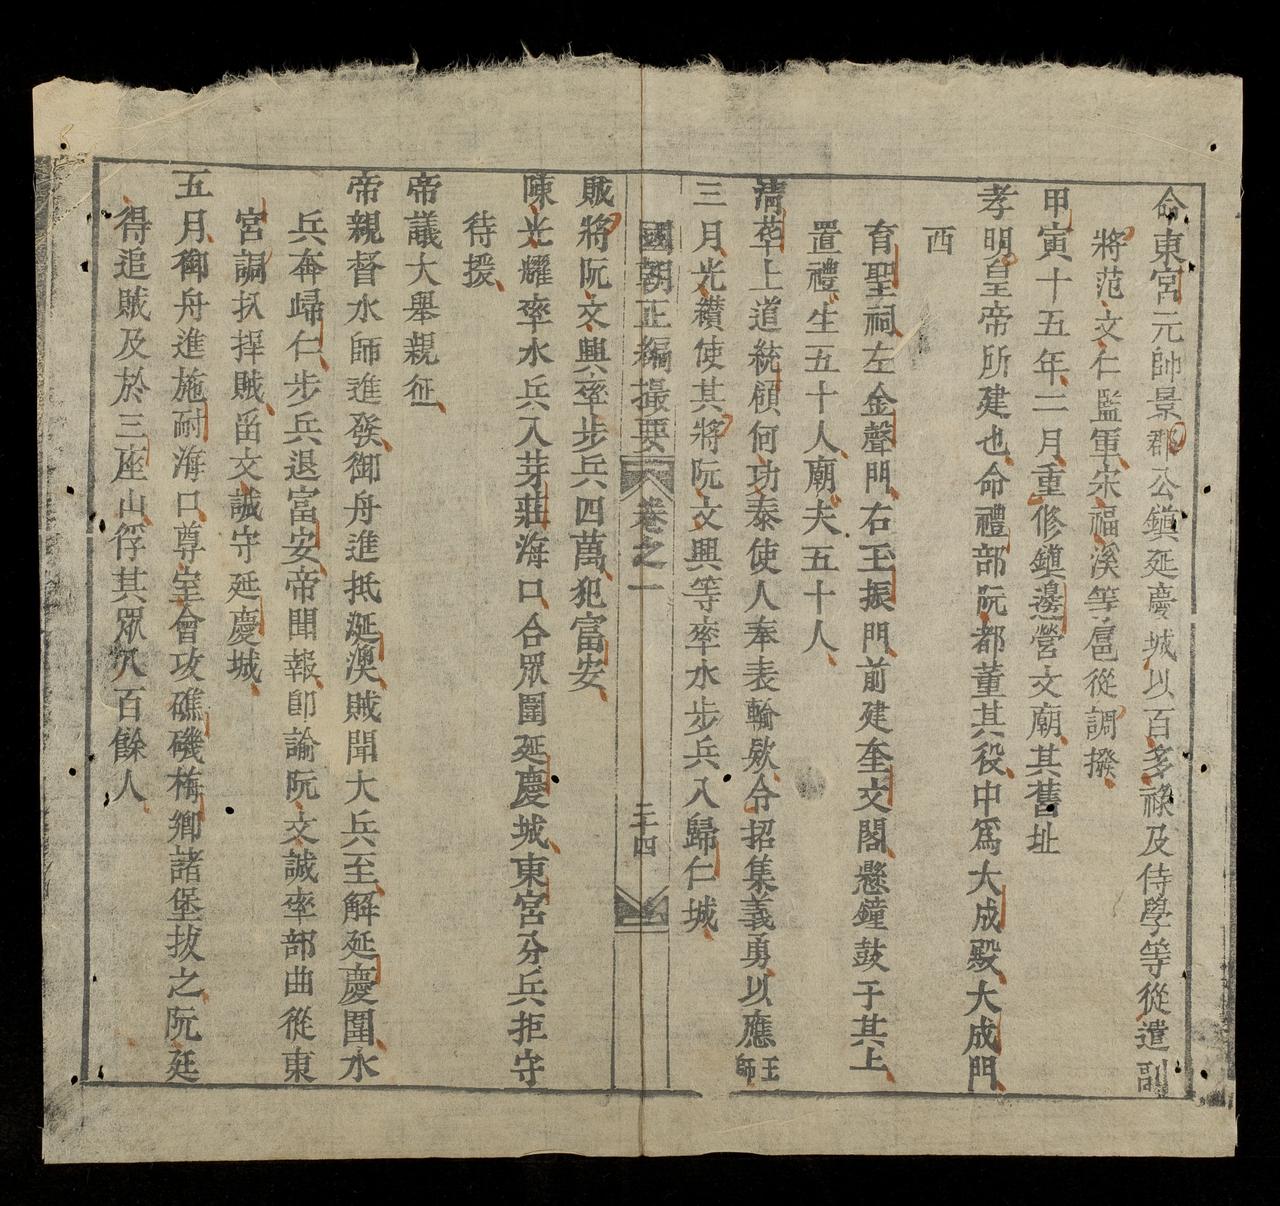 命東宮元帥景郡公鎭延慶城以百多祿及侍學等從遣副
將范文仁監軍宋福溪等扈從調撥
甲寅十五年二月重修鎭邊營文廟其舊址
孝明皇帝所建也命禮部阮都董其役中爲大成殿大成門
西
育聖祠左金聲門右玉振門前建奎文閣懸鐘鼓于其上
置禮生五十人廟夫五十人
清華上道統領何功泰使人奉表輸欵令招集義勇以應王師
三月光纘使其將阮文興等率水步兵入歸仁城
國朝正編撮要 卷之一 三四
賊將阮文興率步兵四萬犯富安
陳光耀率水兵入芽莊海口合眾圍延慶城東宮分兵拒守
待援
帝議大舉親征
帝親督水師進發御舟進抵涎澳賊聞大兵至解延慶圍水
兵奔歸仁步兵退富安帝聞報卽諭阮文誠率部曲從東
宮調扒捍賊留文誠守延慶城
五月御舟進施耐海口尊室會攻礁磯梅鄉諸堡拔之阮廷
得追賊及於三座山俘其眾八百餘人